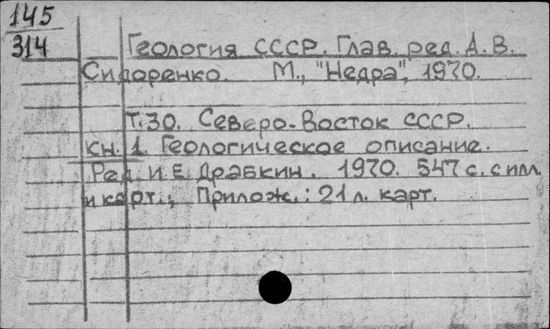 145
314
Геология СССР. Глав. ред. А. В.
Сидоренко. М., "Недра", 1970.
Т.30. Северо-Восток СССР.
кн. 1. Геологическое описание.
Ред. И. Е. Драбкин. 1970. 547 с. с илл.
и карт., Прилож.: 21 л. карт.